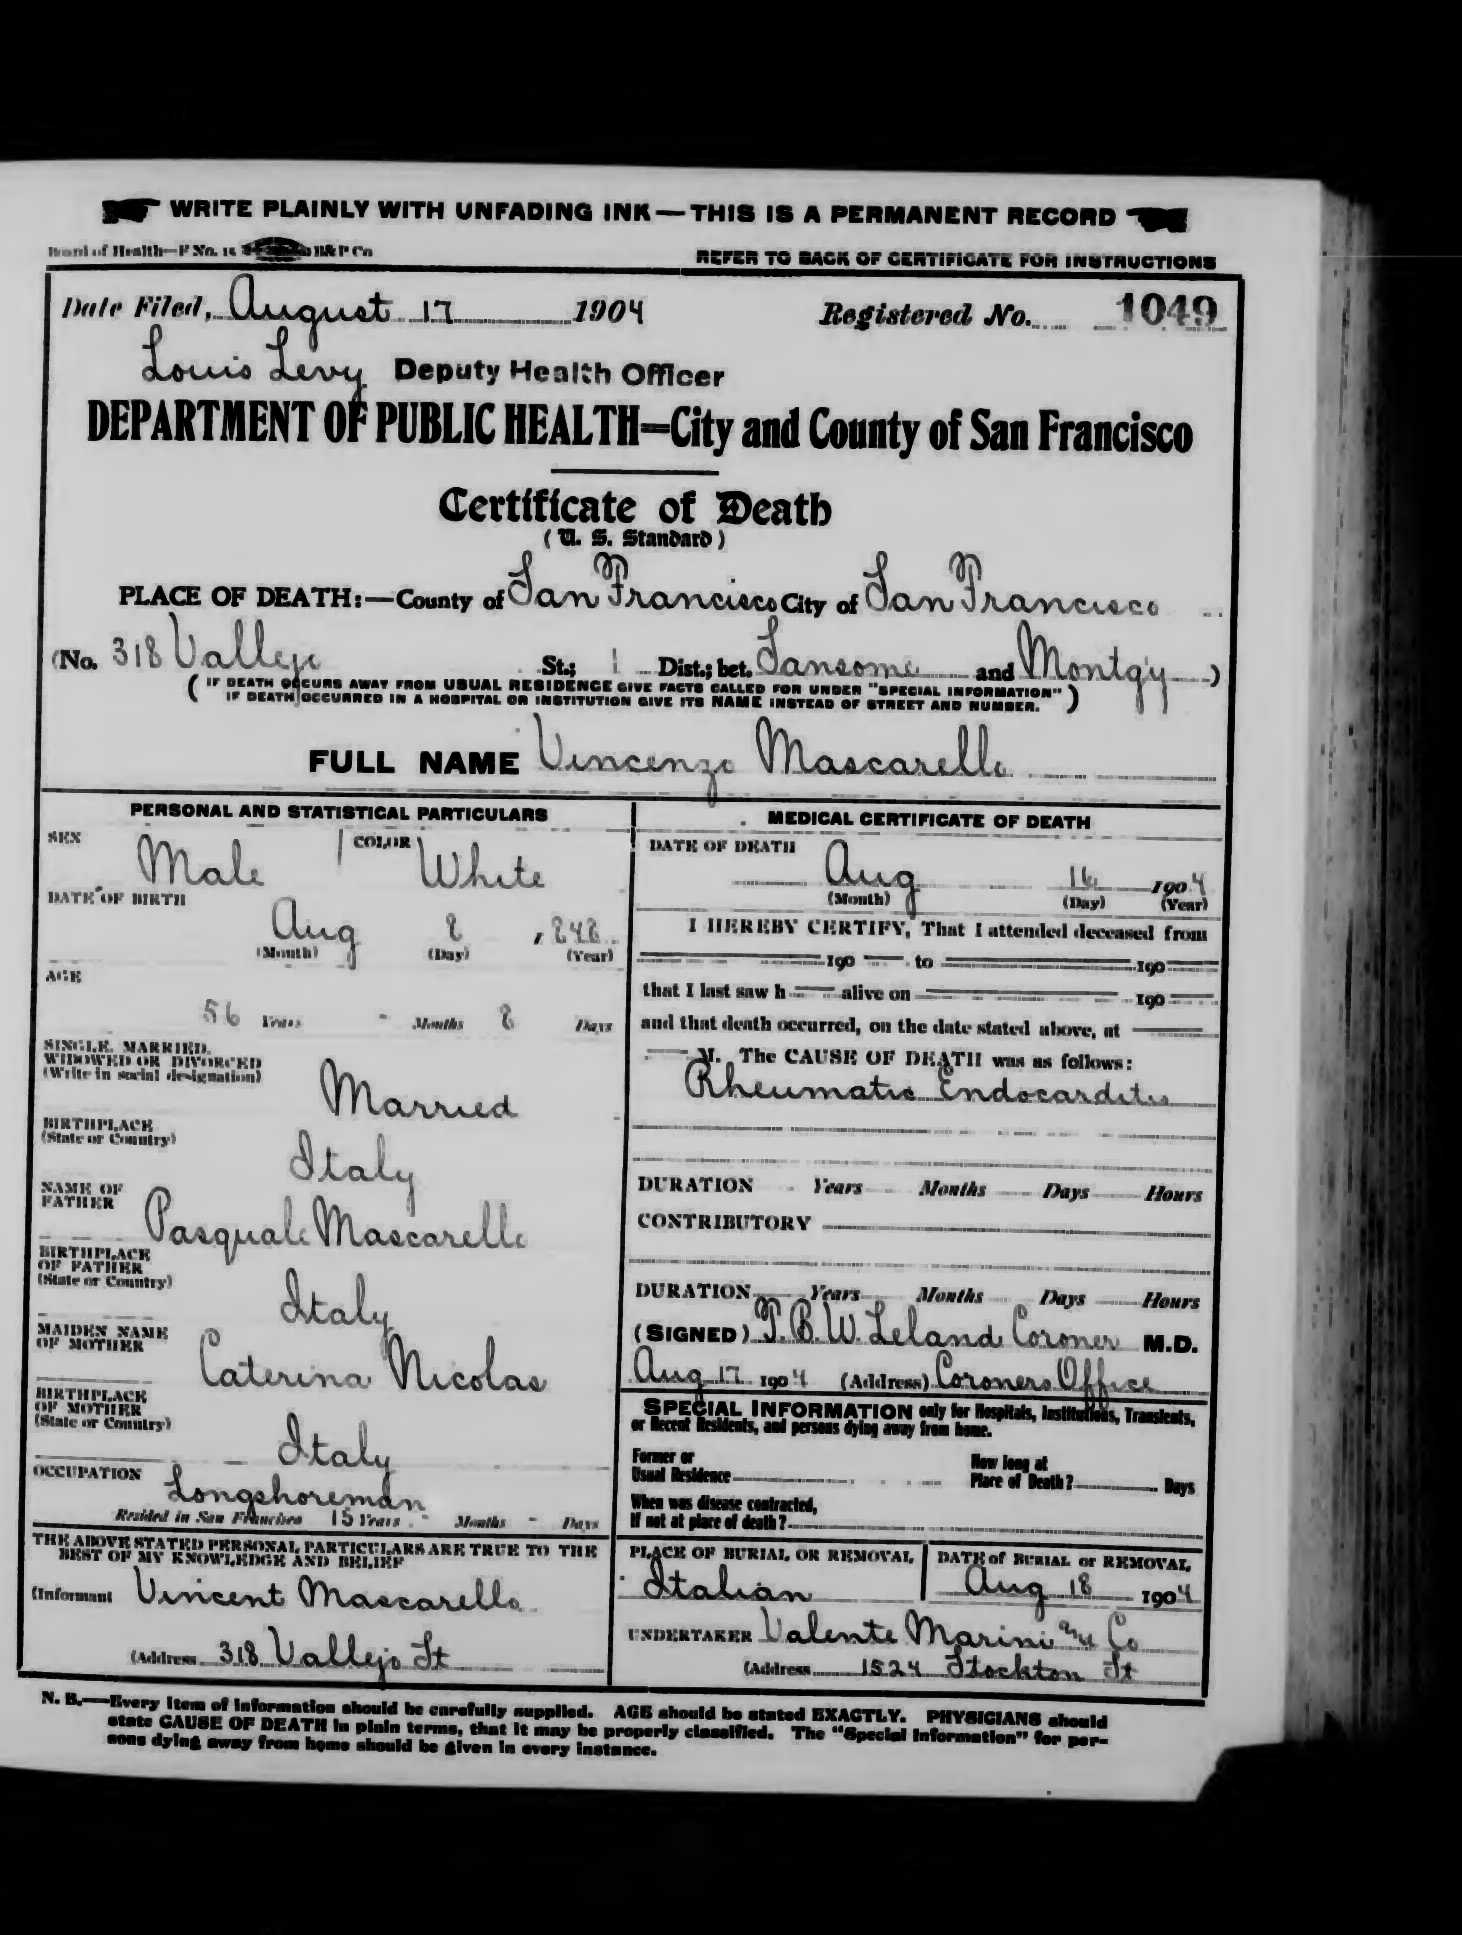 WRITE PLAINLY WITH UNFADING INK — THIS IS A PERMANENT RECORD
Board of Health—F No. 15 B&P Co
REFER TO BACK OF CERTIFICATE FOR INSTRUCTIONS
Date Filed, August 17 1904 Registered No. 1049
Louis Levy Deputy Health Officer
DEPARTMENT OF PUBLIC HEALTH=City and County of San Francisco
Certificate of Death
(U. S. Standard)
PLACE OF DEATH:—County of San Francisco City of San Francisco
(No. 318 Vallejo St.; 1 Dist.; bet. Sansome and Montg'y )
( IF DEATH OCCURS AWAY FROM USUAL RESIDENCE GIVE FACTS CALLED FOR UNDER "SPECIAL INFORMATION"
IF DEATH OCCURRED IN A HOSPITAL OR INSTITUTION GIVE ITS NAME INSTEAD OF STREET AND NUMBER. )
FULL NAME Vincenzo Mascarello
PERSONAL AND STATISTICAL PARTICULARS
SEX Male COLOR White
DATE OF BIRTH
Aug 8 , 848
(Month) (Day) (Year)
AGE
56 Years - Months 8 Days
SINGLE, MARRIED,
WIDOWED OR DIVORCED
(Write in social designation)
Married
BIRTHPLACE
(State or Country)
Italy
NAME OF
FATHER
Pasquale Mascarello
BIRTHPLACE
OF FATHER
(State or Country)
Italy
MAIDEN NAME
OF MOTHER
Caterina Nicolas
BIRTHPLACE
OF MOTHER
(State or Country)
Italy
OCCUPATION
Longshoreman
Resided in San Francisco 15 Years - Months - Days
THE ABOVE STATED PERSONAL PARTICULARS ARE TRUE TO THE
BEST OF MY KNOWLEDGE AND BELIEF
(Informant Vincent Mascarello
(Address 318 Vallejo St
MEDICAL CERTIFICATE OF DEATH
DATE OF DEATH
Aug 16 1904
(Month) (Day) (Year)
I HEREBY CERTIFY, That I attended deceased from
190 to 190
that I last saw h alive on 190
and that death occurred, on the date stated above, at
M. The CAUSE OF DEATH was as follows:
Rheumatic Endocarditis
DURATION Years Months Days Hours
CONTRIBUTORY
DURATION Years Months Days Hours
(SIGNED) T. B. W. Leland Coroner M.D.
Aug 17 1904 (Address) Coroners Office
SPECIAL INFORMATION only for Hospitals, Institutions, Transients,
or Recent Residents, and persons dying away from home.
Former or
Usual Residence
How long at
Place of Death? Days
When was disease contracted,
If not at place of death?
PLACE OF BURIAL OR REMOVAL
Italian
DATE of BURIAL or REMOVAL
Aug 18 1904
UNDERTAKER Valente Marini and Co
(Address 1524 Stockton St
N. B.—Every item of information should be carefully supplied. AGE should be stated EXACTLY. PHYSICIANS should
state CAUSE OF DEATH in plain terms, that it may be properly classified. The "Special Information" for per-
sons dying away from home should be given in every instance.